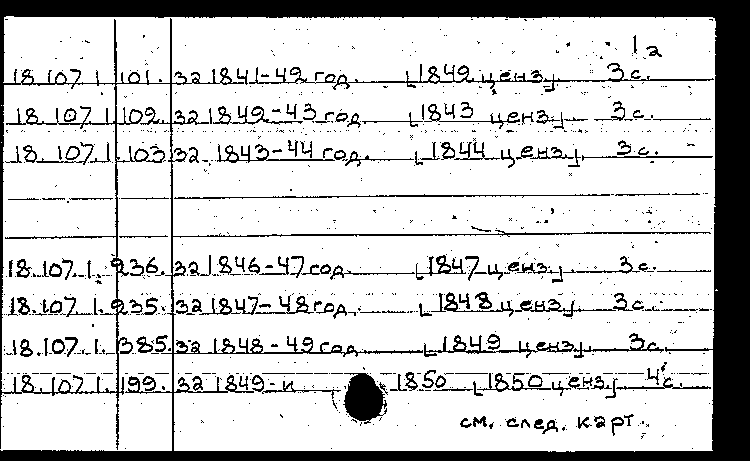 1а
18.107.1.101. за 1841-42 год. [1842 ценз.] 3 с.
18.107.1.102. за 1842-43 год. [1843 ценз.] 3 с.
18.107.1.103. за 1843-44 год. [1844 ценз.] 3 с.
18.107.1.236. за 1846-47 год. [1847 ценз.] 3 с.
18.107.1.235. за 1847-48 год. [1848 ценз.] 3 с.
18.107.1.385. за 1848-49 год. [1849 ценз.] 3 с.
18.107.1.199. за 1849-и 1850 [1850 ценз.] 4 с.
см. след. карт.